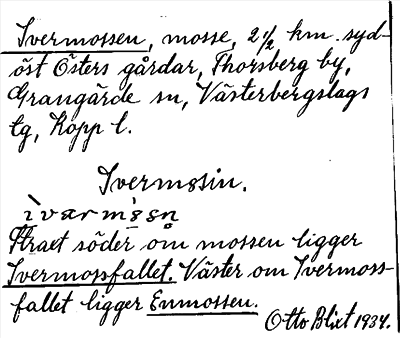 Ivermossen, mosse, 2 1/2 km. syd-
öst Östers gårdar, Thorsberg by,
Grangärde sn, Västerbergslags
tg, Kopp l.
Ivermosin.
ìvarms̀sn̥
Straxt söder om mossen ligger
Ivermossfallet. Väster om Ivermoss-
fallet ligger Enmossen.
Otto Blixt 1934.